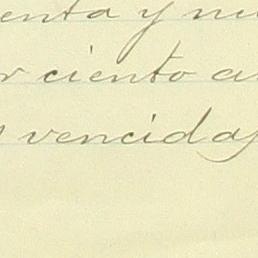 enta y nu
r ciento a
vencidas